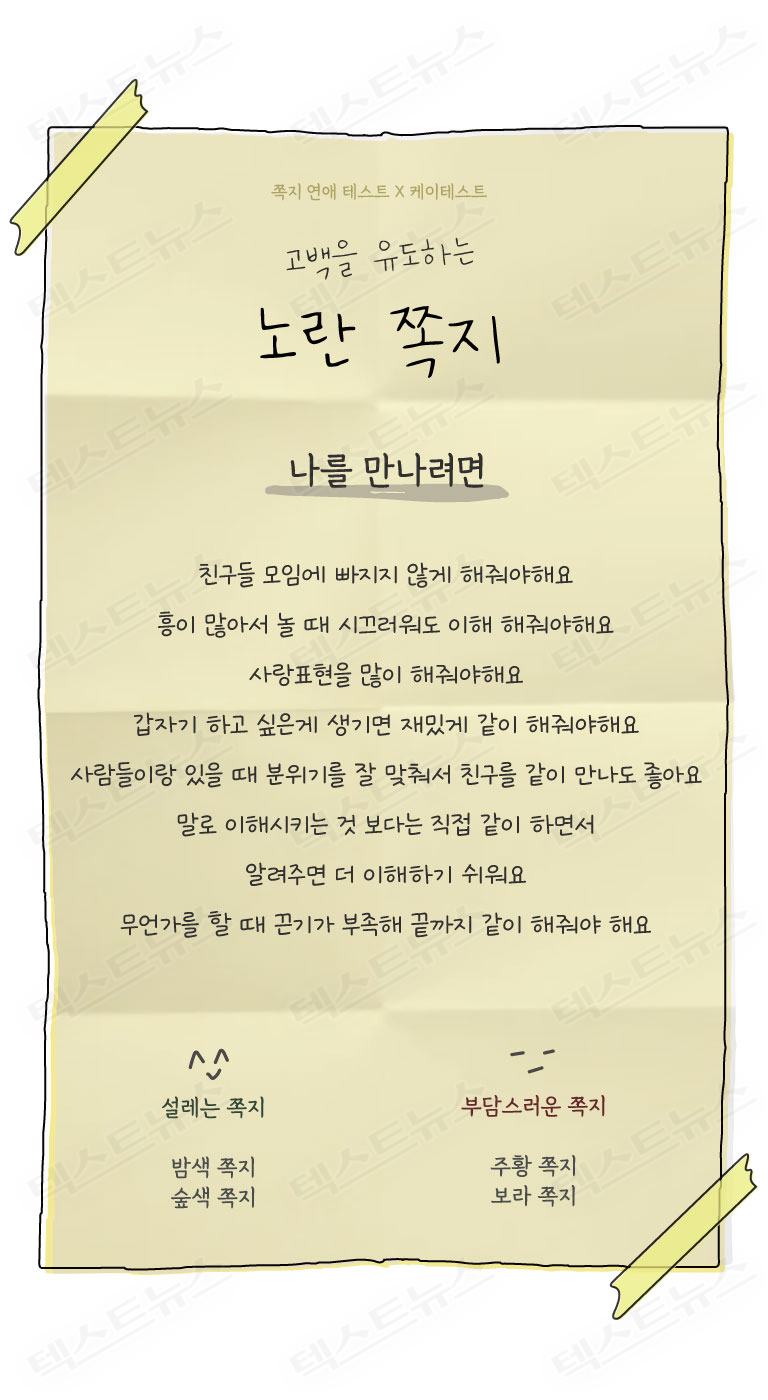 쪽지 연애 테스트 X 케이테스트
고백을 유도하는
노란 쪽지
나를 만나려면
친구들 모임에 빠지지 않게 해줘야해요
흥이 많아서 놀 때 시끄러워도 이해 해줘야해요
사랑표현을 많이 해줘야해요
갑자기 하고 싶은게 생기면 재밌게 같이 해줘야해요
사람들이랑 있을 때 분위기를 잘 맞춰서 친구를 같이 만나도 좋아요
말로 이해시키는 것 보다는 직접 같이 하면서
알려주면 더 이해하기 쉬워요
무언가를 할 때 끈기가 부족해 끝까지 같이 해줘야 해요
설레는 쪽지
밤색 쪽지
숲색 쪽지
부담스러운 쪽지
주황 쪽지
보라 쪽지
텍스트뉴스